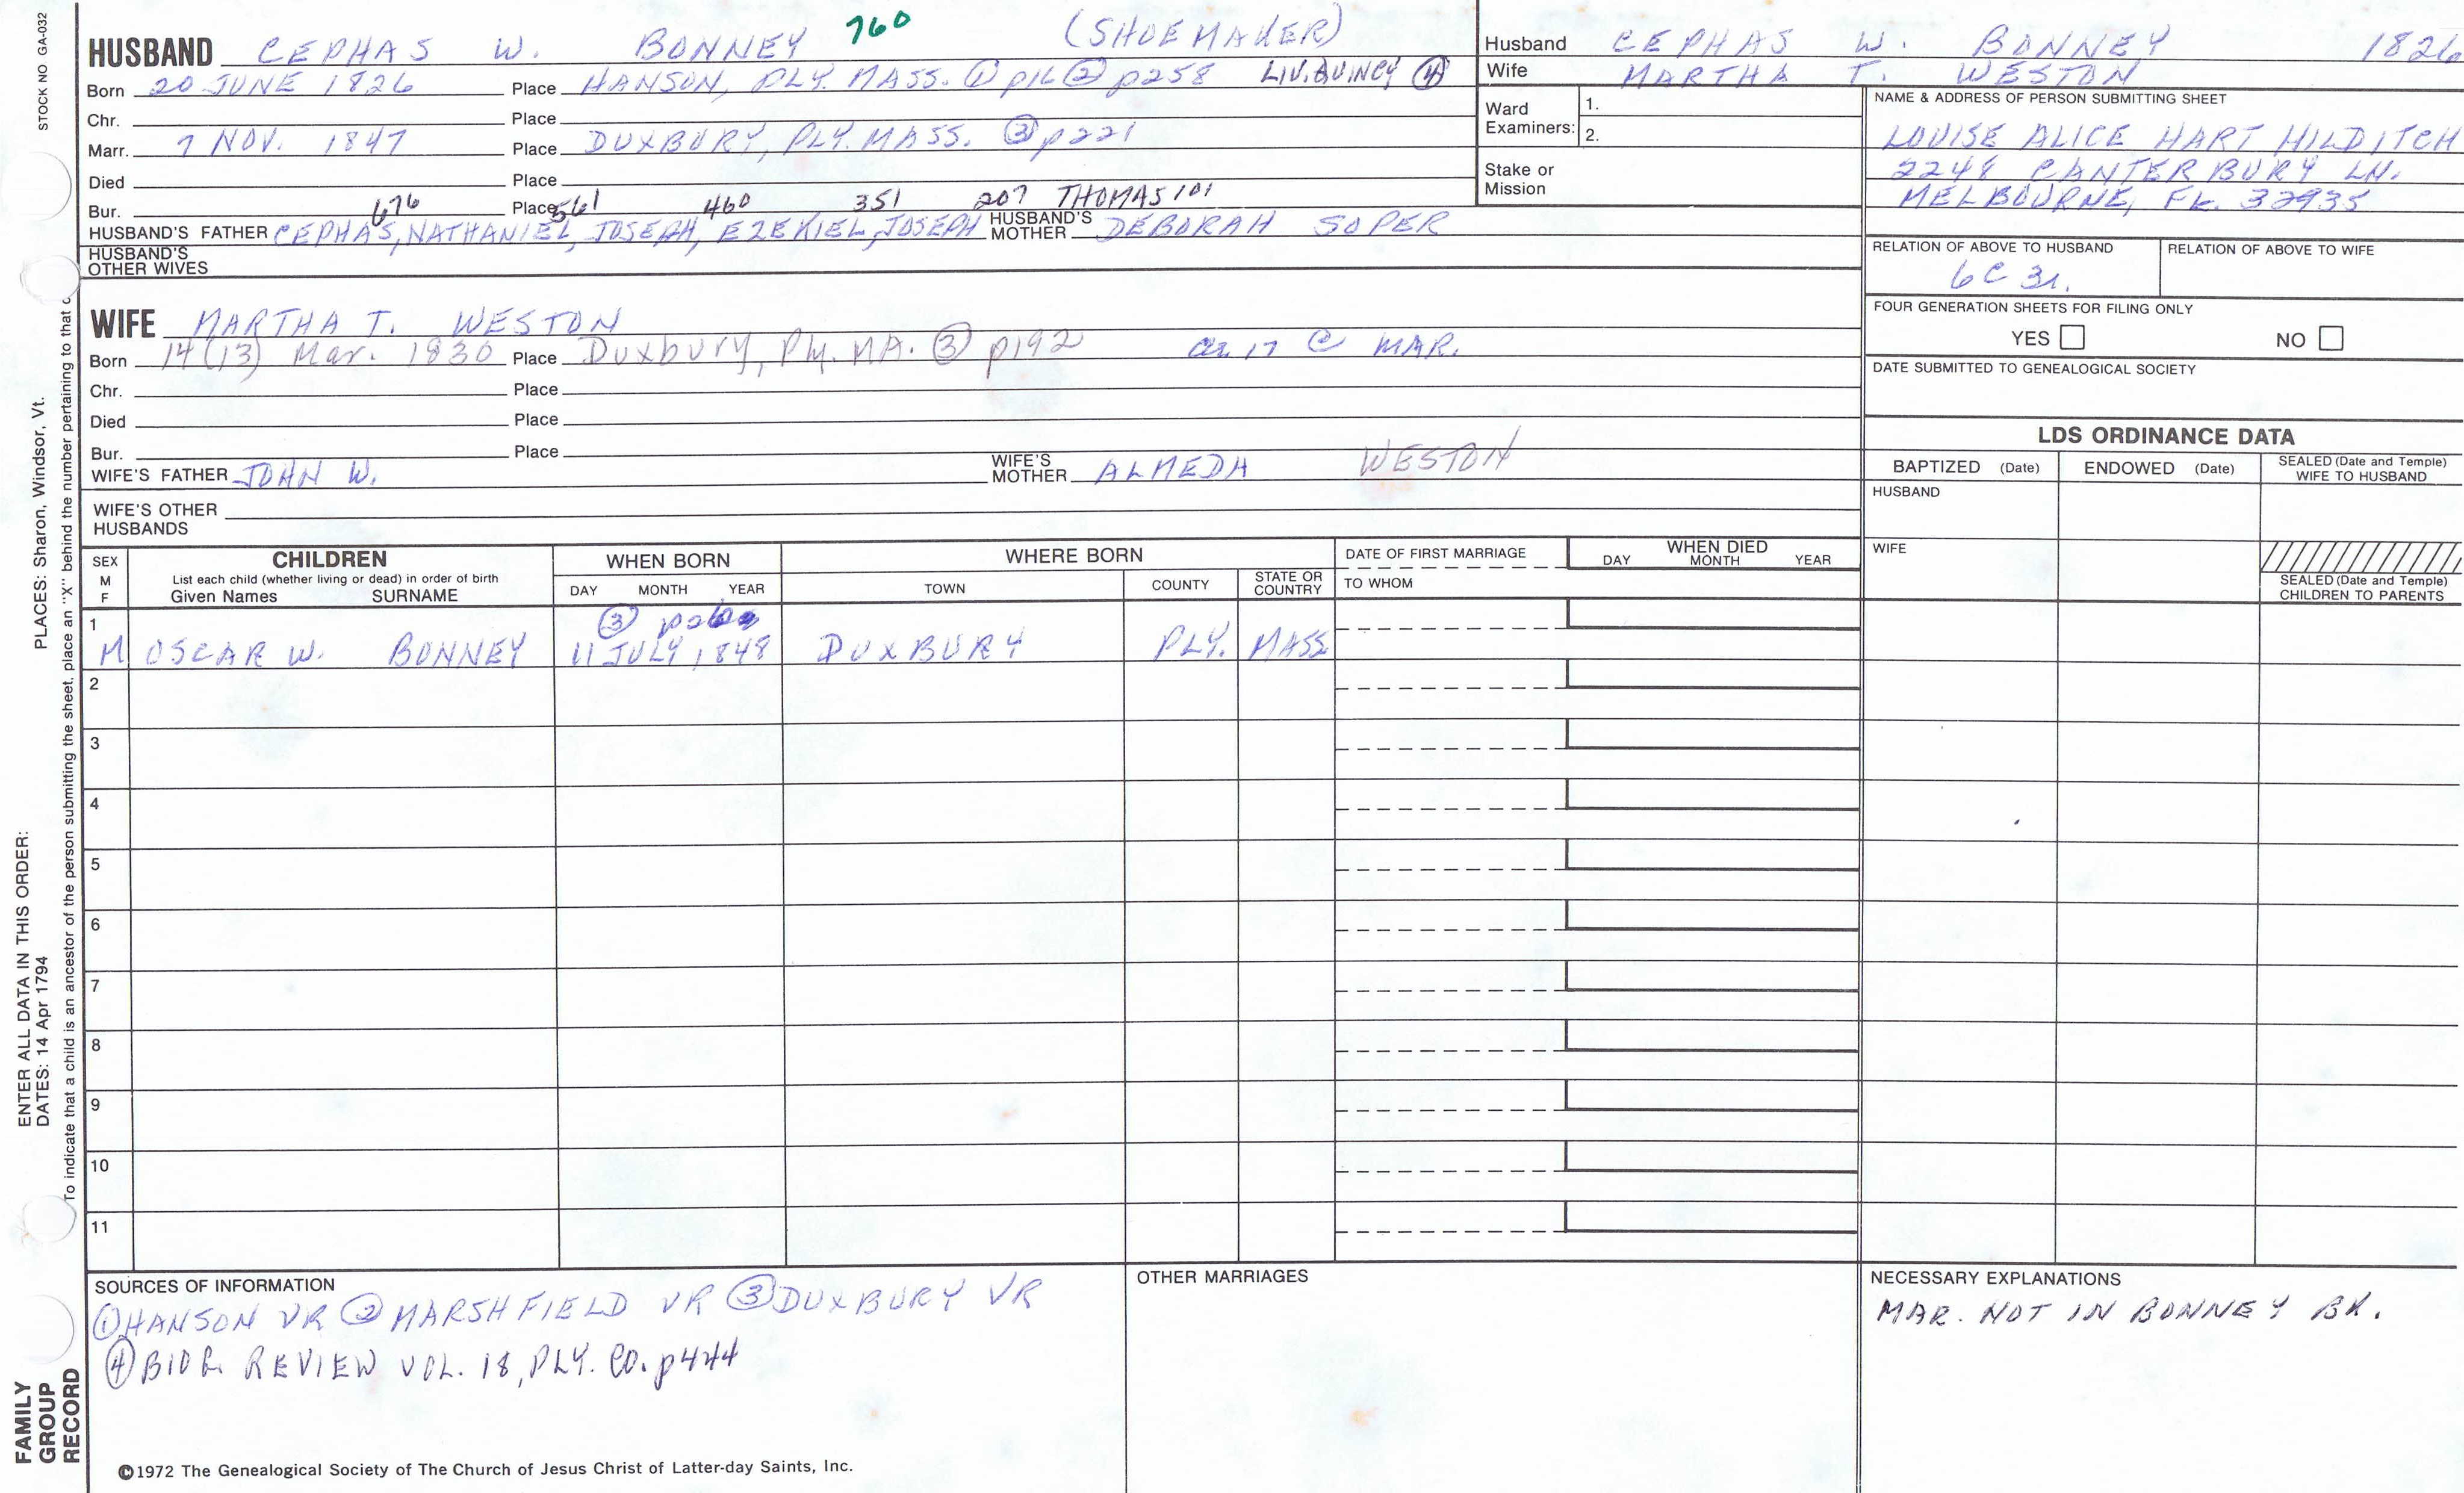 STOCK NO GA-032
HUSBAND CEPHAS W. BONNEY 760 (SHOEMAKER)
Born 20 JUNE 1826 Place HANSON, PLY. MASS. ① p16 ② p258 LIV. QUINCY ④
Chr. Place
Marr. 7 NOV. 1847 Place DUXBURY, PLY. MASS. ③ p221
Died Place
Bur. Place
676 561 460 351 207 THOMAS 101
HUSBAND'S FATHER CEPHAS, NATHANIEL, JOSEPH, EZEKIEL, JOSEPH HUSBAND'S MOTHER DEBORAH SOPER
HUSBAND'S OTHER WIVES
Husband CEPHAS W. BONNEY 1826
Wife MARTHA T. WESTON
Ward Examiners: 1.
2.
Stake or Mission
NAME & ADDRESS OF PERSON SUBMITTING SHEET
LOUISE ALICE HART HILDITCH
2248 CANTERBURY LN.
MELBOURNE, FL. 32935
RELATION OF ABOVE TO HUSBAND RELATION OF ABOVE TO WIFE
6C 3r.
FOUR GENERATION SHEETS FOR FILING ONLY
YES NO
DATE SUBMITTED TO GENEALOGICAL SOCIETY
WIFE MARTHA T. WESTON
Born 14 (13) Mar. 1830 Place Duxbury, Ply. MA. ③ p192 17 @ MAR.
Chr. Place
Died Place
Bur. Place
WIFE'S FATHER JOHN W. WIFE'S MOTHER ALMEDA WESTON
WIFE'S OTHER HUSBANDS
LDS ORDINANCE DATA
BAPTIZED (Date) ENDOWED (Date) SEALED (Date and Temple) WIFE TO HUSBAND
HUSBAND
WIFE
SEALED (Date and Temple) CHILDREN TO PARENTS
SEX M F
CHILDREN
List each child (whether living or dead) in order of birth
Given Names SURNAME
WHEN BORN
DAY MONTH YEAR
WHERE BORN
TOWN COUNTY STATE OR COUNTRY
DATE OF FIRST MARRIAGE
TO WHOM
WHEN DIED
DAY MONTH YEAR
③
1 M OSCAR W. BONNEY 11 JULY, 1848 DUXBURY PLY. MASS
2
3
4
5
6
7
8
9
10
11
SOURCES OF INFORMATION
① HANSON VR ② MARSHFIELD VR ③ DUXBURY VR
④ BIOG. REVIEW VOL. 18, PLY. CO. p444
OTHER MARRIAGES
NECESSARY EXPLANATIONS
MAR. NOT IN BONNEY BK.
©1972 The Genealogical Society of The Church of Jesus Christ of Latter-day Saints, Inc.
ENTER ALL DATA IN THIS ORDER:
DATES: 14 Apr 1794
PLACES: Sharon, Windsor, Vt.
To indicate that a child is an ancestor of the person submitting the sheet, place an "X" behind the number pertaining to that
FAMILY GROUP RECORD